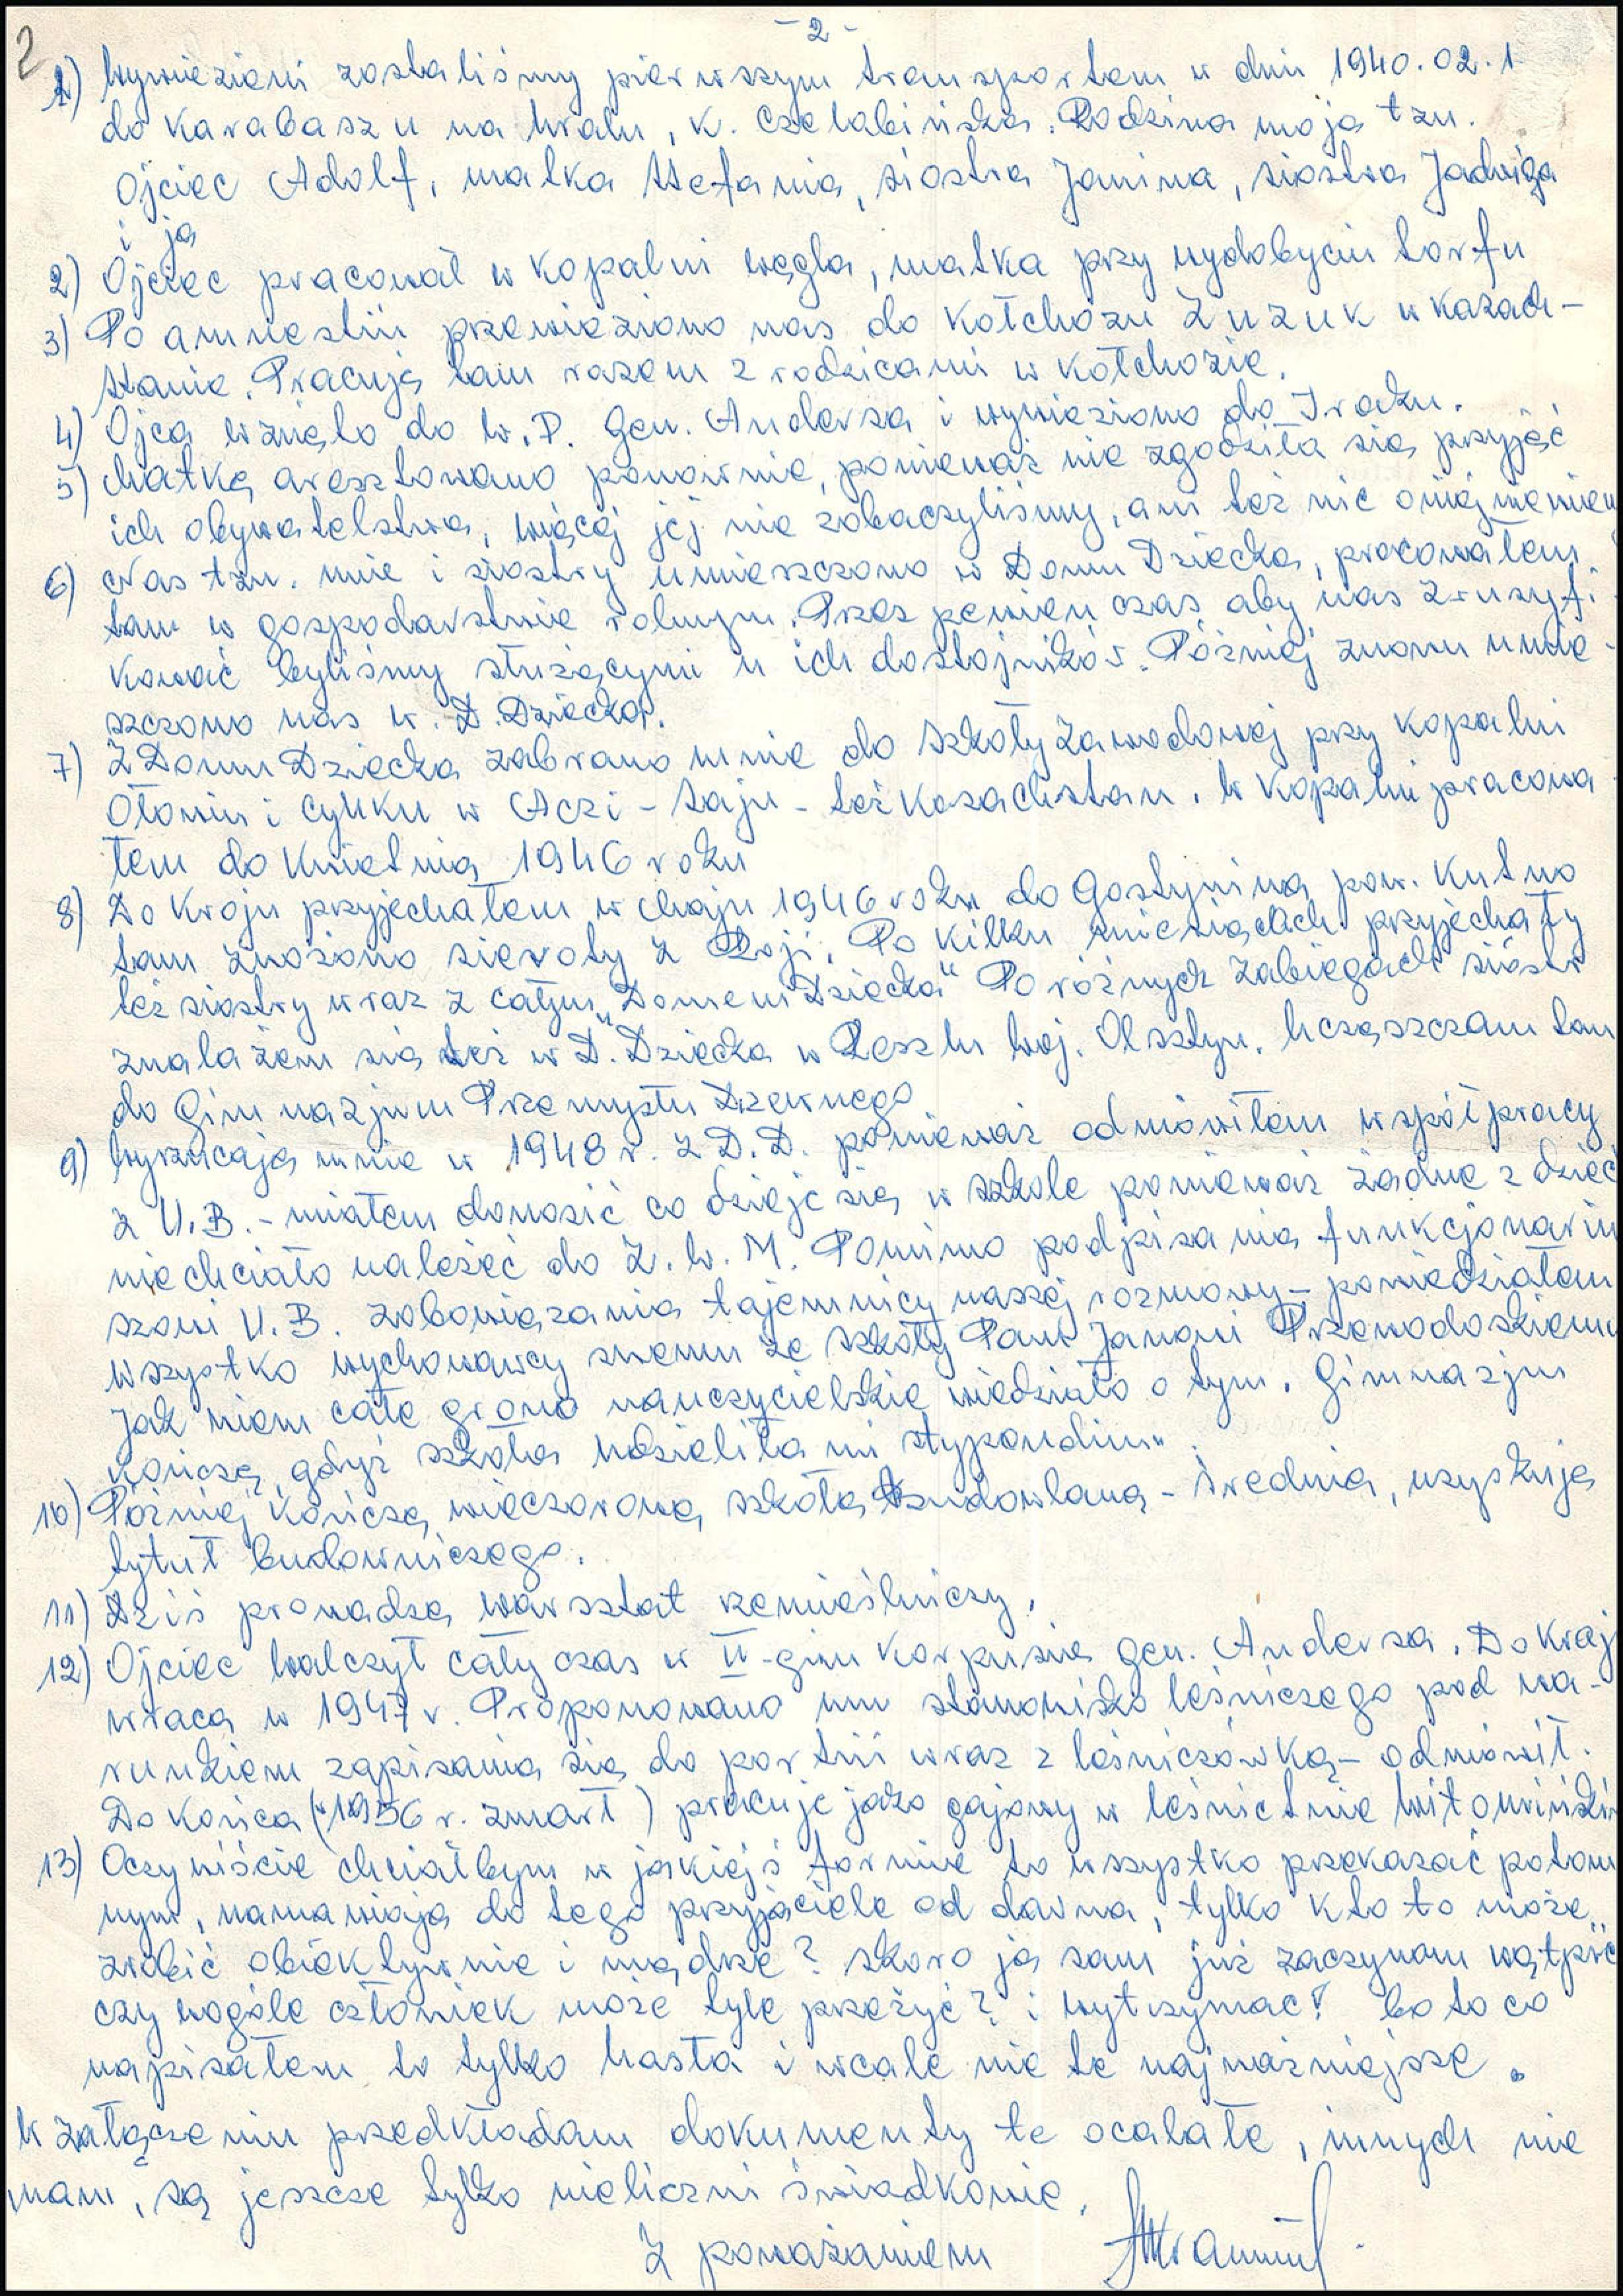 2
- 2 -
1) Wywiezieni zostaliśmy pierwszym transportem w dniu 1940.02.1
do Karabaszu na Uralu, k. Czelabińska. Rodzina moja tzn.
Ojciec Adolf, matka Stefania, siostra Janina, siostra Jadwiga
i ja
2) Ojciec pracował w kopalni węgla, matka przy wydobyciu torfu
3) Po amnestii przewieziono nas do kołchozu Zuzuk w Kazach-
stanie. Pracuję tam razem z rodzicami w kołchozie.
4) Ojca wzięło do W.P. Gen. Andersa i wywieziono do Iraku.
5) Matkę aresztowano ponownie, ponieważ nie zgodziła się przyjąć
ich obywatelstwa, więcej jej nie zobaczyliśmy, ani też nic o niej nie wiem
6) Nas tzn. mnie i siostry umieszczono w Domu Dziecka, pracowałem
tam w gospodarstwie rolnym. Przez pewien czas aby nas zrusyfi-
kować byliśmy służącymi u ich dostojników. Później znowu umie-
szczono nas w. D. Dziecka.
7) Z Domu Dziecka zabrano mnie do szkoły zawodowej przy kopalni
ołowiu i cynku w Aczi-Saju - też Kazachstan. W kopalni pracowa
łem do kwietnia 1946 roku
8) Do kraju przyjechałem w Maju 1946 roku do Gostynina pow. Kutno
tam zwożono sieroty z Rosji. Po kilku miesiącach przyjechały
też siostry wraz z całym „Domem Dziecka" Po różnych zabiegach sióstr
znalazłem się też w D. Dziecka w Reszlu woj. Olsztyn. Uczęszczam tam
do Gimnazjum Przemysłu Drzewnego
9) Wyrzucają mnie w 1948 r. z D.D. ponieważ odmówiłem współpracy
z U.B. - miałem donosić co dzieje się w szkole ponieważ żadne z dzieci
nie chciało należeć do Z.W.M. Pomimo podpisania funkcjonariu
szowi U.B. zobowiązania tajemnicy naszej rozmowy - powiedziałem
wszystko wychowawcy swemu ze szkoły Panu Janowi
Jak wiem całe grono nauczycielskie wiedziało o tym. Gimnazjum
kończę, gdyż szkoła udzieliła mi stypendium.
10) Później kończę wieczorową szkołę budowlaną - średnią, uzyskuję
tytuł budowniczego.
11) Dziś prowadzę warsztat rzemieślniczy.
12) Ojciec walczył cały czas w II-gim Korpusie gen. Andersa. Do kraju
wraca w 1947 r. Proponowano mu stanowisko leśniczego pod wa-
runkiem zapisania się do partii wraz z leśniczówką - odmówił.
Do końca (w 1956 r. zmarł) pracuje jako gajowy w leśnictwie
13) Oczywiście chciałbym w jakiejś formie to wszystko przekazać potom
nym, namawiają do tego przyjaciele od dawna, tylko kto to może
zrobić obiektywnie i mądrze? skoro ja sam już zaczynam wątpić
czy wogóle człowiek może tyle przeżyć? i wytrzymać! bo to co
napisałem to tylko hasła i wcale nie te najważniejsze.
W załączeniu przedkładam dokumenty te ocalałe, innych nie
mam, są jeszcze tylko nieliczni świadkowie.
Z poważaniem